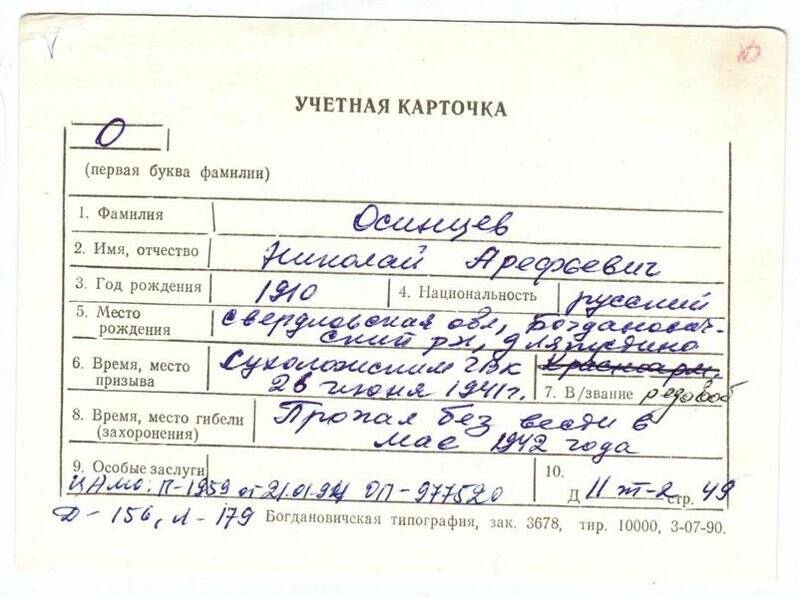 УЧЕТНАЯ КАРТОЧКА
О
(первая буква фамилии)
1. Фамилия Осинцев
2. Имя, отчество Николай Арефьевич
3. Год рождения 1910 4. Национальность русский
5. Место рождения Свердловская обл, Богданович-
ский рн, д Ляпустино
6. Время, место призыва Сухоложским ГВК Красноарм.
26 июня 1941г. 7. В/звание рядовой
8. Время, место гибели (захоронения) Пропал без вести в
мае 1942 года
9. Особые заслуги 10.
ЦАМО: П-1959 от 21.01.92 ОП-977520 Д II т-2 стр. 49
Д-156, Л-179 Богдановичская типография, зак. 3678, тир. 10000, 3-07-90.